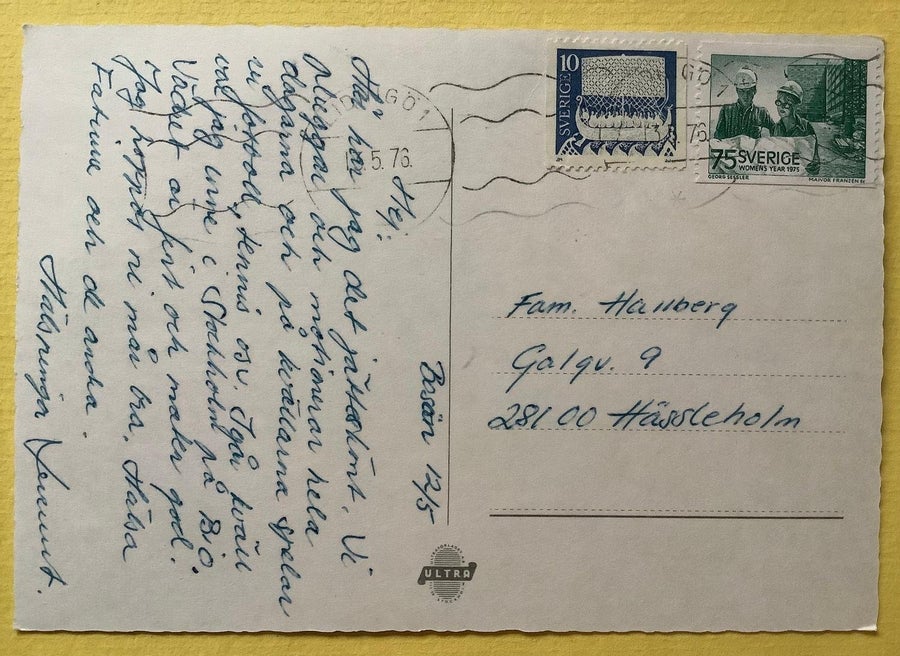 Bosön 12/5
Hej!
Här har jag det jätteskönt. Vi
pluggar och motionerar hela
dagarna och på kvällarna spelar
vi fotboll, tennis osv. Igår kväll
var jag inne i Stockholm på BIO.
Vädret är fint och maten god.
Jag hoppas ni mår bra. Hälsa
och de andra.
Hälsningar
10
SVERIGE
75 SVERIGE
WOMENS YEAR 1975
GEORG SESSLER
MAJVOR FRANZÉN SC
LIDINGÖ 1
.5.76.
GÖ
76.
Fam. Hallberg
Galgv. 9
281 00 Hässleholm
ULTRA